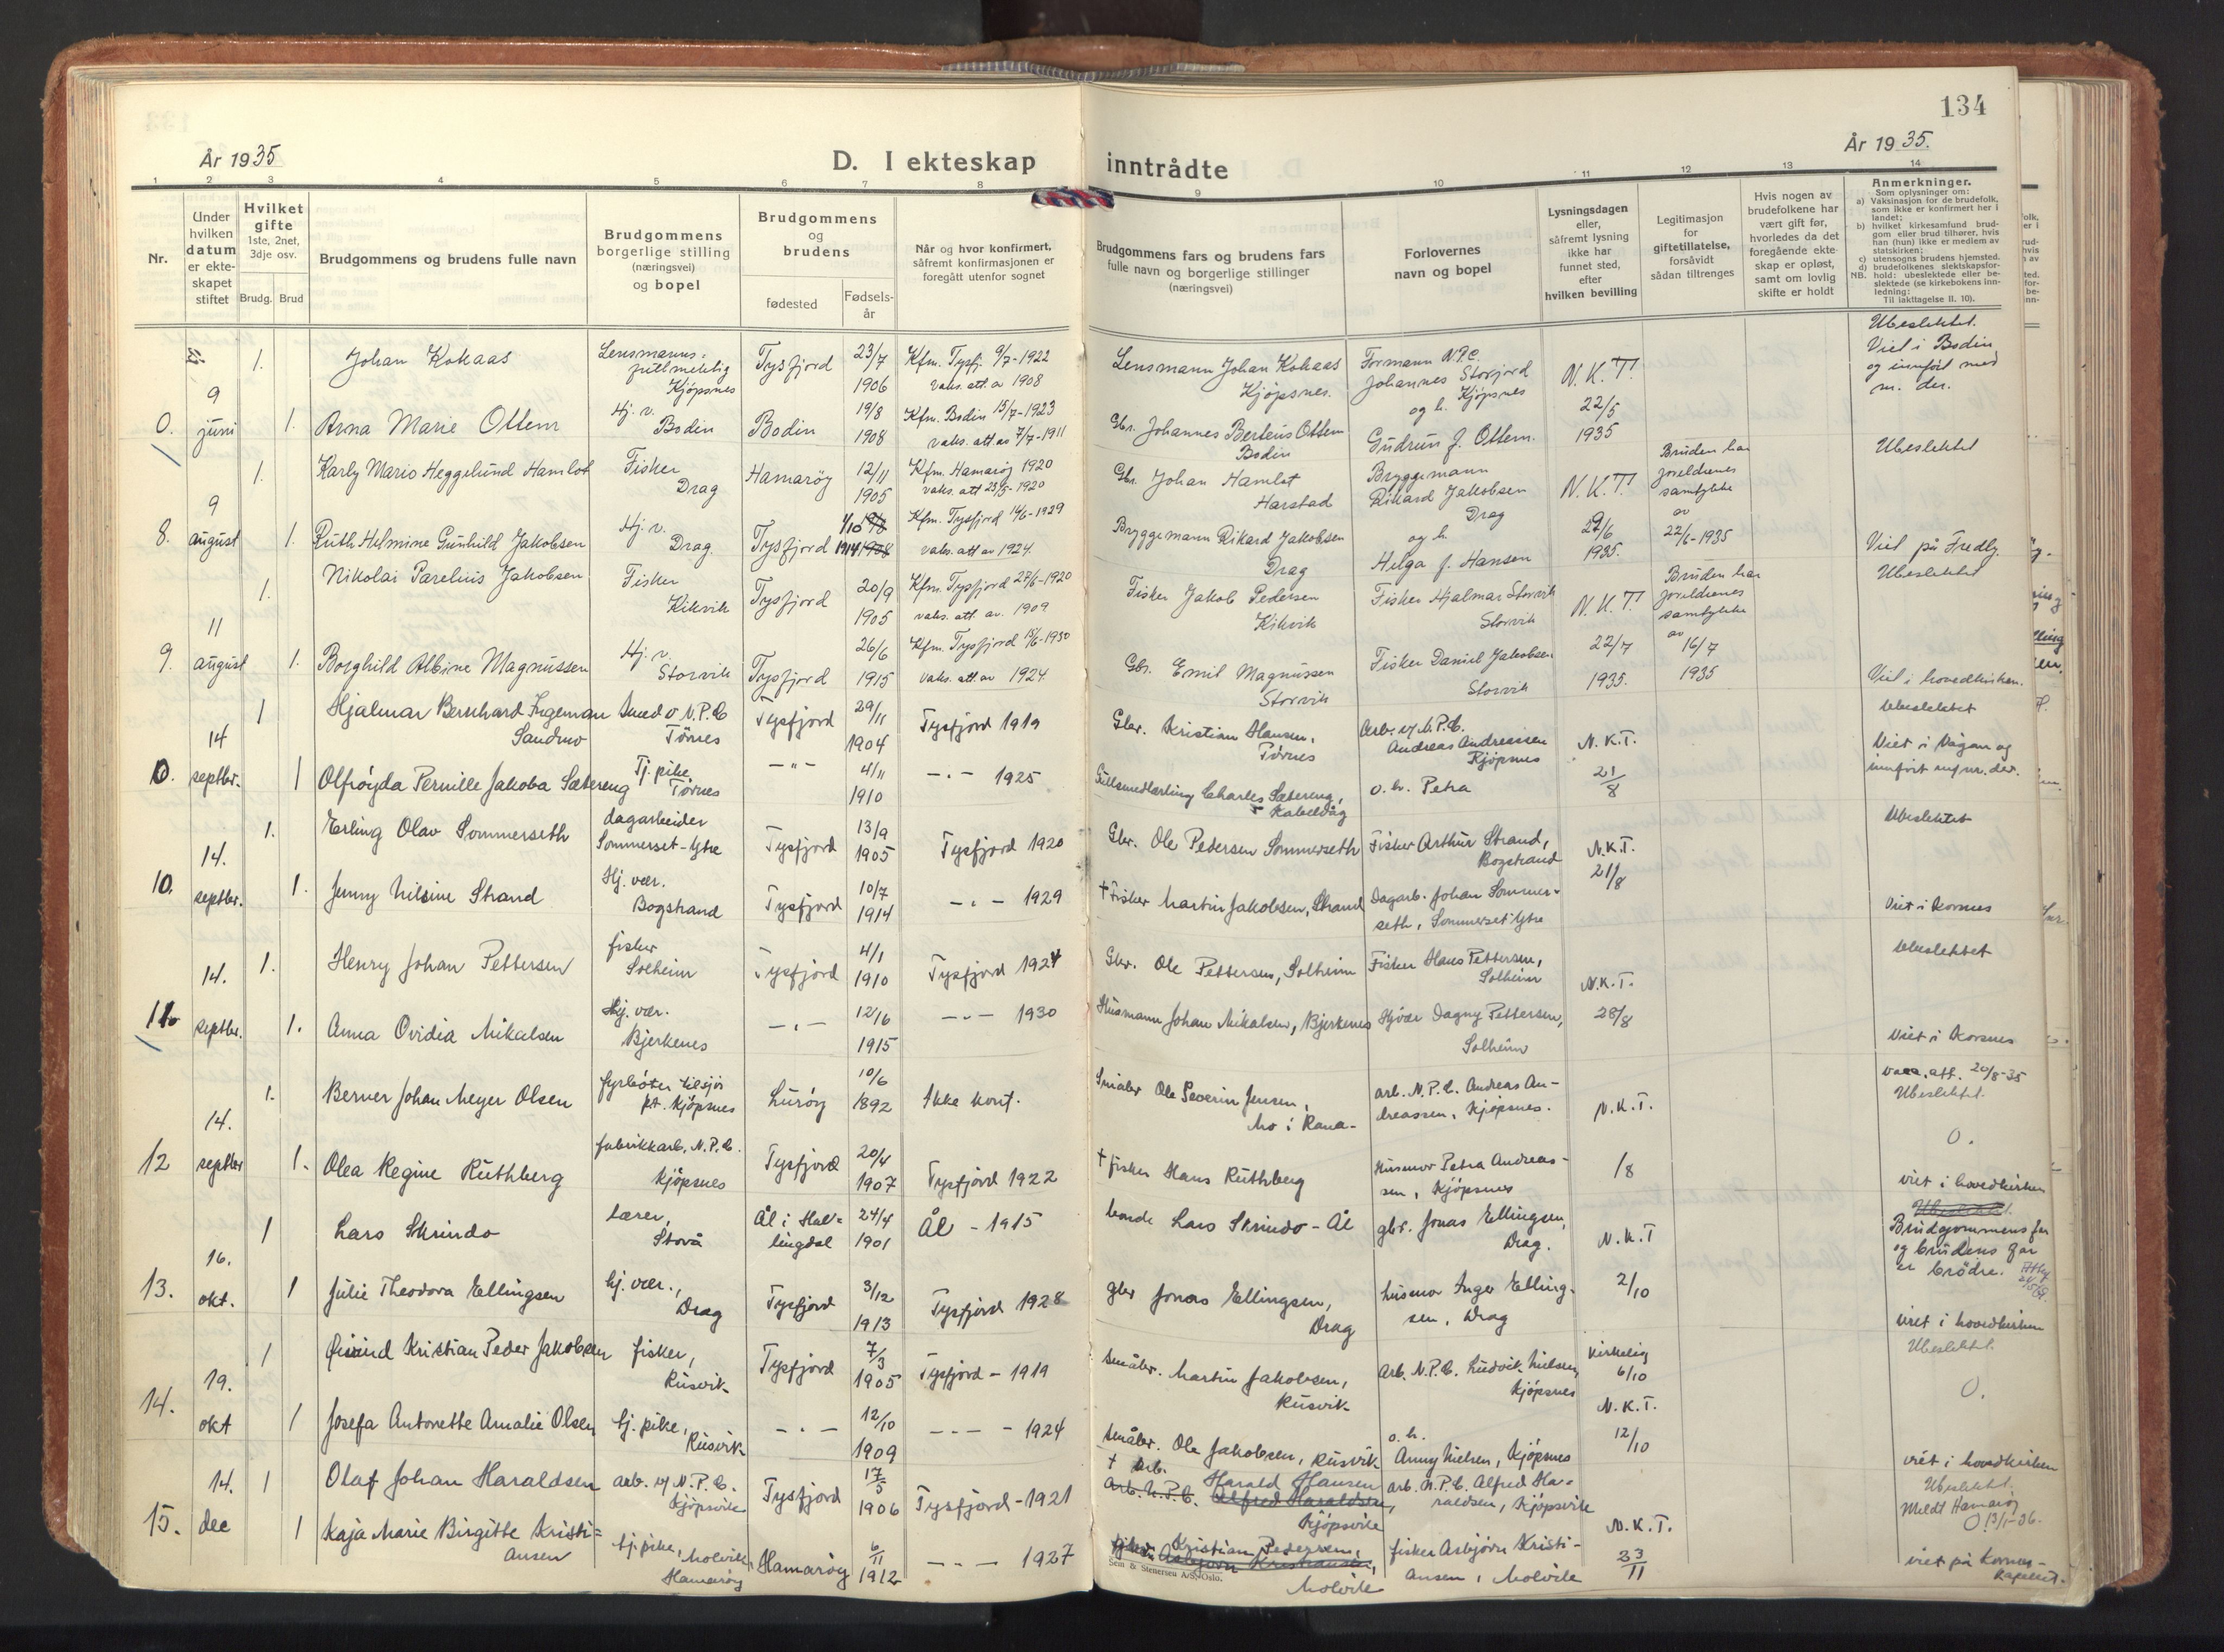 134
År 1935
D. I ekteskap inntrådte
År 1935.
1 2 3 4 5 6 7 8 9 10 11 12 13 14
Nr.
Under hvilken datum er ekteskapet stiftet
Hvilket gifte
1ste, 2net, 3dje osv.
Brudg. Brud
Brudgommens og brudens fulle navn
Brudgommens borgerlige stilling (næringsvei) og bopel
Brudgommens og brudens
fødested
Fødselsår
Når og hvor konfirmert, såfremt konfirmasjonen er foregått utenfor sognet
Brudgommens fars og brudens fars fulle navn og borgerlige stillinger (næringsvei)
Forlovernes navn og bopel
Lysningsdagen eller, såfremt lysning ikke har funnet sted, efter hvilken bevilling
Legitimasjon for giftetillatelse, forsåvidt sådan tiltrenges
Hvis nogen av brudefolkene har vært gift før, hvorledes da det foregående ekteskap er opløst, samt om lovlig skifte er holdt
Anmerkninger.
Som oplysninger om:
a) Vaksinasjon for de brudefolk, som ikke er konfirmert her i landet;
b) hvilket kirkesamfund brudgom eller brud tilhører, hvis han (hun) ikke er medlem av statskirken;
c) utensogns brudens hjemsted.
d) brudefolkenes slektskapsforhold: ubeslektede eller beslektede (se kirkebokens innledning:
NB.
Til iakttagelse II. 10).
0. 9 juni
1. Johan Kokaas Lensmanns-fullmektig Kjöpsnes Tysfjord 23/7 1906 Kfm. Tysfj. 9/7-1922 vaks. att. av 1908 Lensmann Johan Kokaas Kjöpsnes. Formann N.P.C. Johannes Storjord og h. Kjöpsnes N.K.T. 22/5 1935 Ubeslektet. Viet i Bodin og innført med nr. der.
1. Arna Marie Ottem Hj. v. Bodin Bodin 19/8 1908 Kfm. Bodin 15/7-1923 vaks. att av 7/7-1911 Gbr. Johannes Berteus Ottem Bodin Gudrun J. Ottem.
8. 9 august
1. Karly Mario Heggelund Hamlot Fisker Drag Hamaröy 12/11 1905 Kfm. Hamaröy 1920 vaks. att 23/5-1920 Gbr. Johan Hamlot Harstad Bryggemann Rikard Jakobsen Drag og h. N.K.T. 27/6 1935. Bruden har foreldrenes samtykke av 22/6-1935 Ubeslektet
1. Ruth Helmine Gunhild Jakobsen Hj. v. Drag. Tysfjord 1/10 1914 Kfm. Tysfjord 14/6-1929 vaks. att av 1924. Bryggemann Rikard Jakobsen Drag Helga J. Hansen Viet på Fredly.
9. 11 august
1. Nikolai Parelius Jakobsen Fisker Kikvik Tysfjord 20/9 1905 Kfm. Tysfjord 27/6-1920 vaks. att. av. 1909 Fisker Jakob Pedersen Kikvik Fisker Hjalmar Storvik Storvik N.K.T. 22/7 1935. Bruden har foreldrenes samtykke av 16/7 1935 Ubeslektet
1. Borghild Albine Magnussen Hj. v. Storvik Tysfjord 26/6 1915 Kfm. Tysfjord 15/6-1930 vaks. att. av 1924 Gbr. Emil Magnussen Storvik Fisker Daniel Jakobsen Storvik Viet i hovedkirken.
0. 14 septbr.
1 Hjalmar Bernhard Ingeman Sandmo Smed v N.P.C Törnes Tysfjord 29/11 1904 Tysfjord 1919 Gbr. Kristian Hansen, Törnes Arb. v/ N.P.C. Andreas Andreassen Kjöpsnes N.K.T. 21/8 Ubeslektet
1 Olfröyda Pernille Jakoba Sætereng Tj. pike, Törnes -"- 4/11 1910 -"- 1925 Gullsmedlærling Charles Sætereng, Kabelvåg o. h. Petra Viet i Vågan og innført m/ nr. der.
10. 14. septbr.
1. Erling Olav Sommerseth dagarbeider Sommerset-Ytre Tysfjord 13/9 1905 Tysfjord 1920 Gbr. Ole Pedersen Sommerseth Fisker Arthur Strand, Bogstrand N.K.T. 21/8 Ubeslektet
1. Jenny Nilsine Strand Hj. vær. Bogstrand Tysfjord 10/7 1914 -"- 1929 † Fisker Martin Jakobsen, Strand Dagarb. Johan Sommerseth, Sommerset Ytre Viet i Korsnes
11. 14. septbr.
1. Henry Johan Pettersen fisker Solheim Tysfjord 4/1 1910 Tysfjord 1924 Gbr. Ole Pettersen, Solheim Fisker Hans Pettersen, Solheim N.K.T. 28/8 Ubeslektet
1. Anna Ovidia Mikalsen Hj. vær. Bjerkenes -"- 12/6 1915 -"- 1930 Husmann Johan Mikalsen, Bjerkenes Hj.vær Dagny Pettersen, Solheim Viet i Korsnes
12 14. septbr
1. Berner Johan Meyer Olsen fyrböter tilsjös p.t. Kjöpsnes Luröy 10/6 1892 Ikke konf. Småbr Ole Severin Jensen, Mo i Rana- arb. N.P.C. Andreas Andreassen, Kjöpsnes. N.K.T. /8 vacc. att. 20/8-35 Ubeslektet. 0.
1. Olea Regine Ruthberg fabrikkarb. N.P.C. Kjöpsnes Tysfjord 20/4 1907 Tysfjord 1922 † fisker Hans Ruthberg Husmor Petra Andreassen, Kjöpsnes viet i hovedkirken
13. 16. okt.
1 Lars Skrindo lærer, Storå Ål i Hallingdal 24/4 1901 Ål - 1915 bonde Lars Skrindo - Ål gbr. Jonas Ellingsen, Drag. N.K.T 2/10 Ubeslektet. Brudgommens far og brudens far er brödre.
1 Julie Theodora Ellingsen hj. vær., Drag Tysfjord 3/12 1913 Tysfjord 1928 gbr Jonas Ellingsen, Drag husmor Inger Ellingsen, Drag viet i hovedkirken
14. 19. okt
1 Öivind Kristian Peder Jakobsen fisker, Rusvik Tysfjord 7/3 1905 Tysfjord - 1919 småbr. Martin Jakobsen, Rusvik Arb. N.P.C. Ludvik Nielsen, Kjöpsnes kirkelig 6/10 N.K.T. 12/10 Ubeslektet. 0.
1 Josefa Antonette Amalie Olsen tj. pike, Rusvik -"- 12/10 1909 -"- - 1924 småbr. Ole Jakobsen, Rusvik o. h. Anny Nielsen, Kjöpsnes viet i hovedkirken
15. 14. dec
1 Olaf Johan Haraldsen arb. v/ N.P.C. Kjöpsvik Tysfjord 17/5 1906 Tysfjord - 1921 † Arb. Harald Hansen Arb. N.P.C. Alfred Haraldsen, Kjöpsvik arb. N.P.C. Alfred Haraldsen, Kjöpsvik N.K.T. 23/11 Ubeslektet. Meldt Hamaröy 13/1-36.
1 Kaja Marie Birgitte Kristiansen tj. pike, Molvik, Hamaröy Hamaröy 6/11 1912 -"- 1927 Kristian Pedersen, Asbjörn Kristiansen, Molvik fisker Asbjörn Kristiansen, Molvik viet på Korsnes-kapellet.
Sem & Stenersen A/S, Oslo.